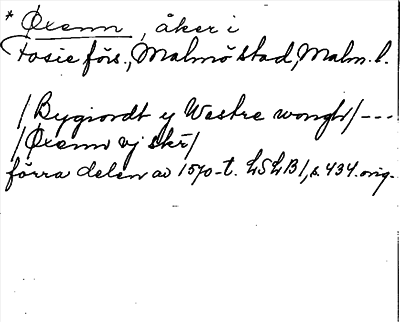 * Øxenn, åker i
Fosie förs., Malmö stad, Malm. l.
/Bygiordt y Westre wongh/ ---
/Øxenn vj skr/
förra delen av 1570-t. LSLB1, s. 434. orig.